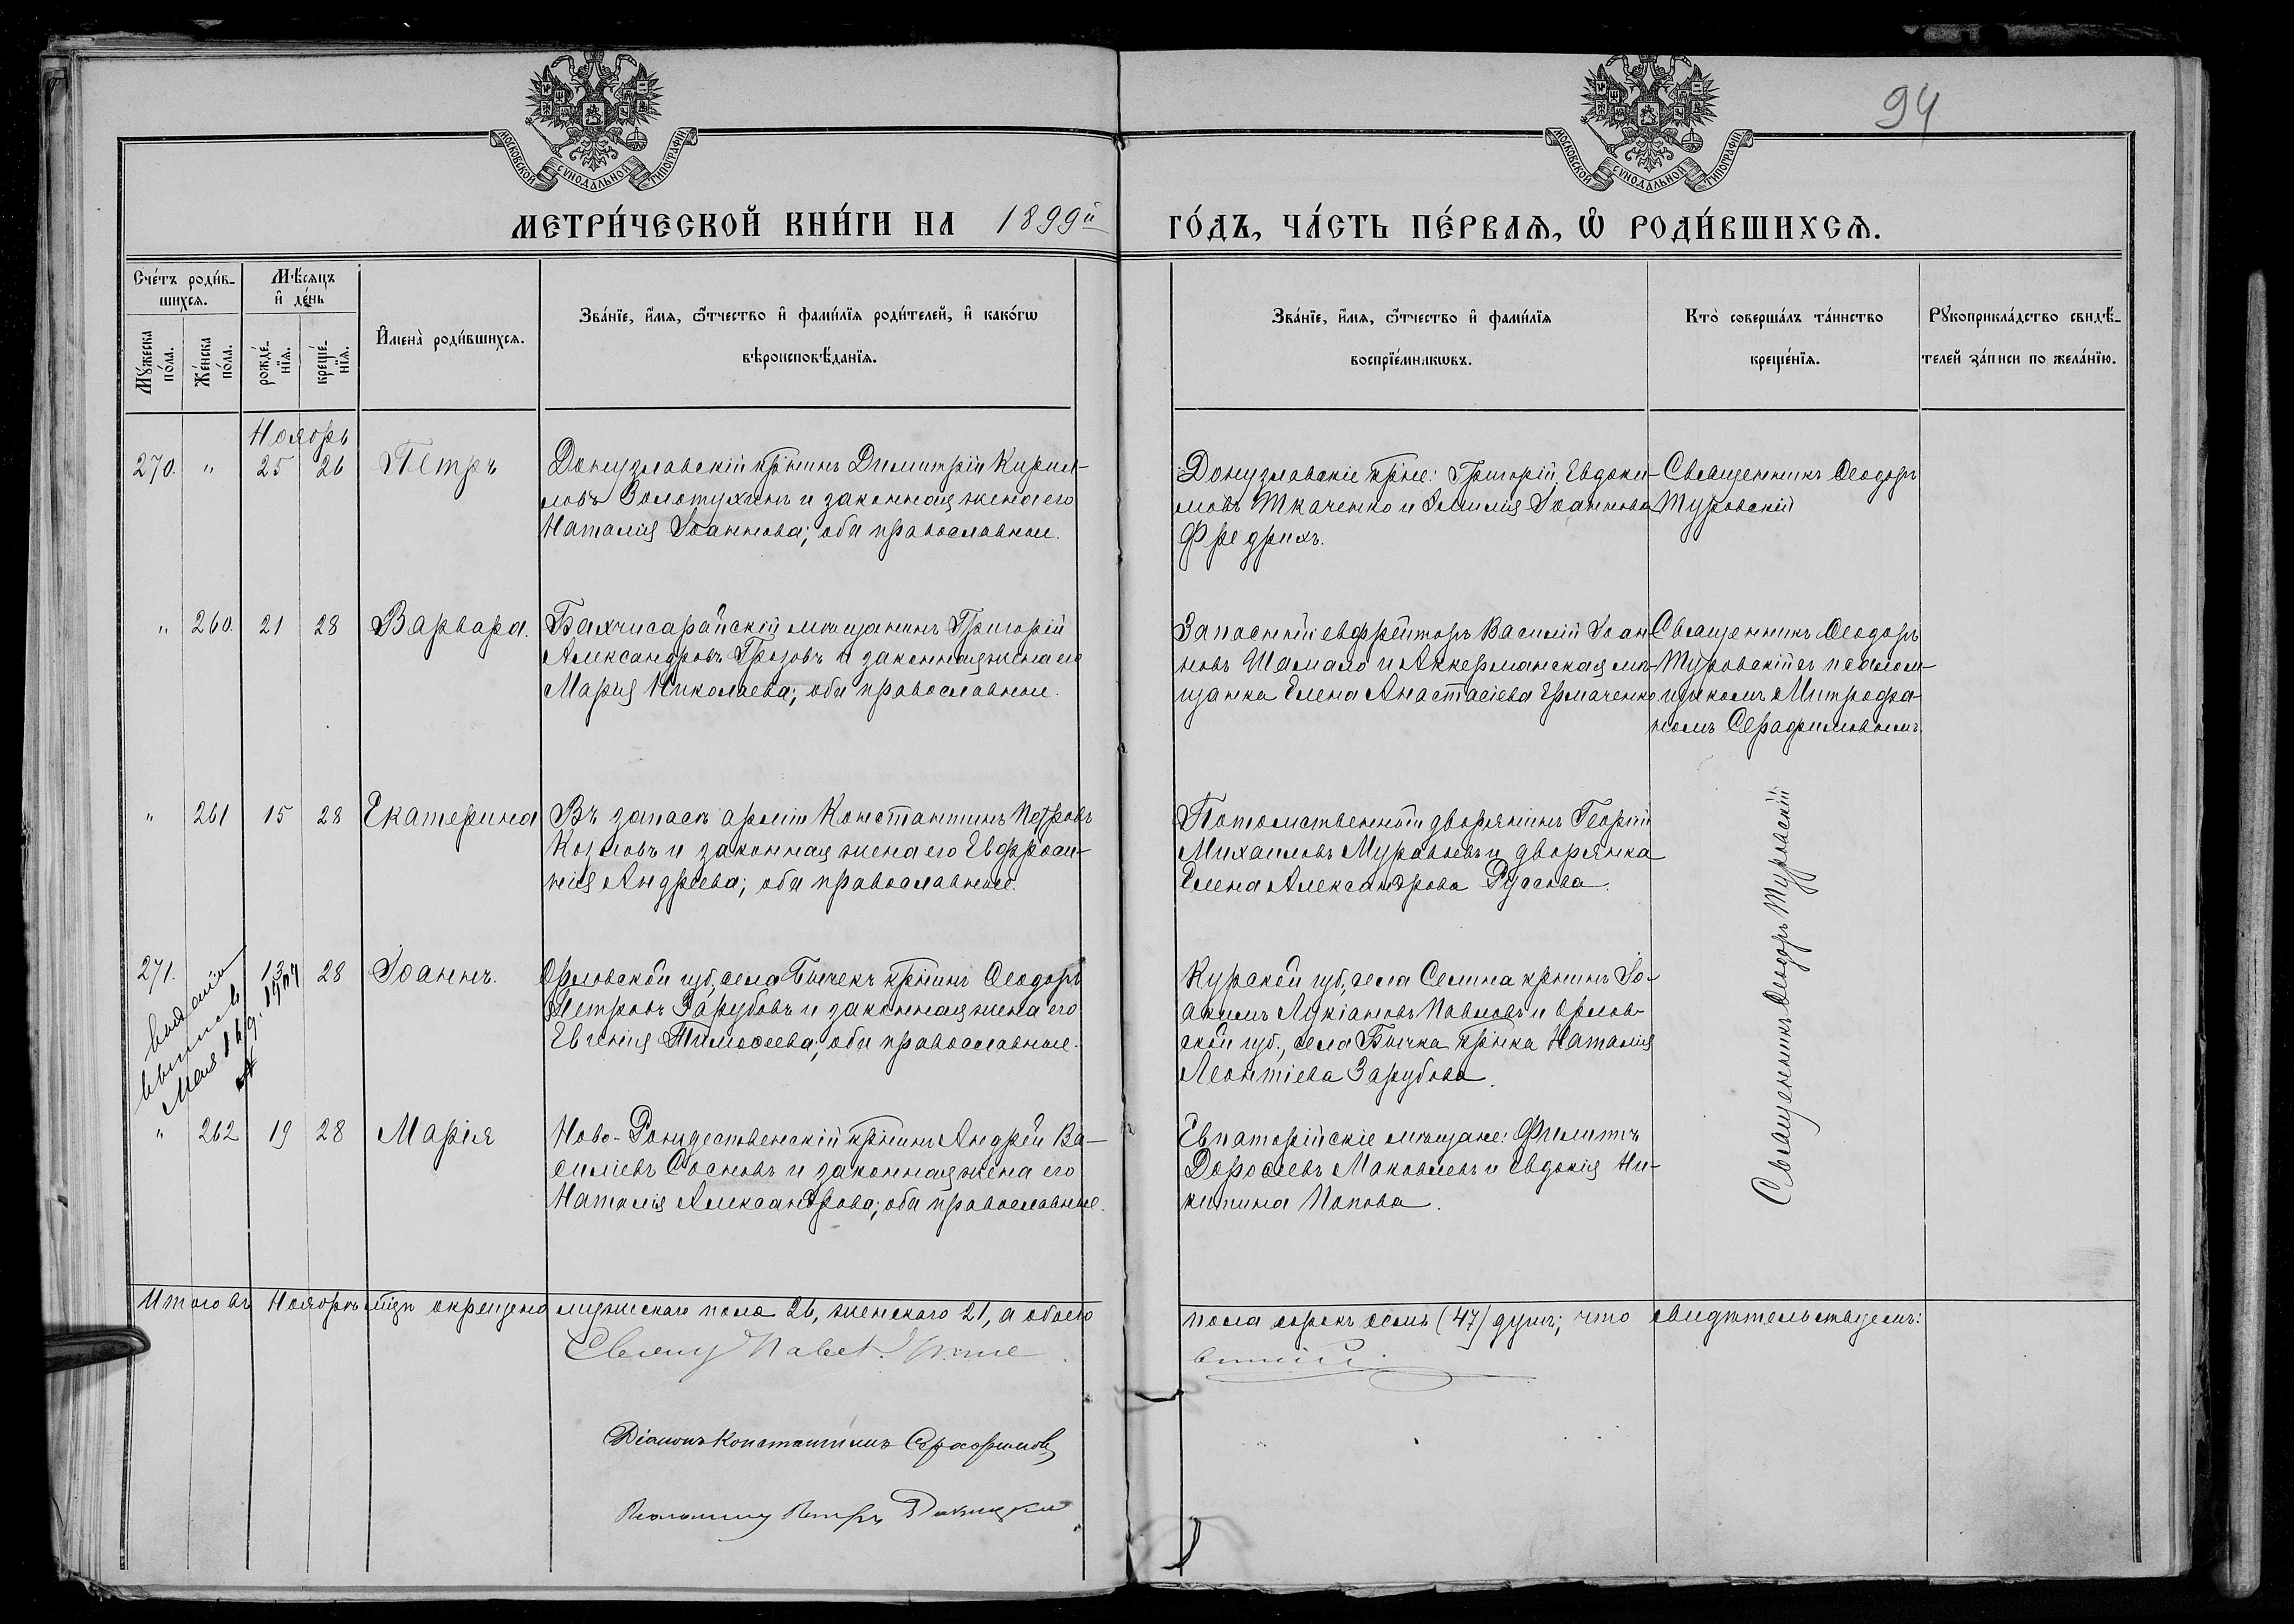 94
МОСКОВСКОЙ СѴНОДАЛЬНОЙ ТИПОГРАФІИ
МОСКОВСКОЙ СѴНОДАЛЬНОЙ ТИПОГРАФІИ
МЕТРИ́ЧЕСКОЙ КНИ́ГИ НА 1899й ГО́ДЪ, ЧА́СТЬ ПЕ́РВАѦ, Ѽ РОДИ́ВШИХСѦ.
Сче́тъ роди́в-
шихсѧ.
Мꙋ́жеска по́ла.
Же́нска по́ла.
Мѣ́сѧцъ
и҆ де́нь
рожде́-нїѧ.
креще́-нїѧ.
И҆мена̀ роди́вшихсѧ.
Зва́нїе, и҆́мѧ, ѻ҆́тчество и҆ фами́лїѧ роди́телей, и҆ како́гѡ
вѣроисповѣ́данїѧ.
Зва́нїе, и҆́мѧ, ѻ҆́тчество и҆ фами́лїѧ
воспрїе́мникѡвъ.
Кто̀ соверша́лъ та́инство
креще́нїѧ.
Рꙋкоприкла́дство свидѣ́-
телей за́писи по жела́нїю.
Ноябрь
270. " 25 26 Петръ
Донузлавскій крнинъ Димитрій Кирил-
ловъ Золотухинъ и законная жена его
Наталія Іоаннова; оба православные.
Донузлавскіе крне: Григорій Евдоки-
мовъ Ткаченко и Эмилія Іоаннова
Фредрихъ.
Священникъ Ѳеодоръ
Туровскій
" 260. 21 28 Варвара.
Бахчисарайскій мѣщанинъ Григорій
Александровъ Грозовъ и законная жена его
Марія Николаева; оба православные.
Запасный ефрейторъ Василій Іоан-
новъ Шамало и Аккерманская мѣ-
щанка Елена Анастасіева Ермаченко
Священникъ Ѳеодоръ
Туровскій съ псалом-
щикомъ Митрофа-
номъ Серафимовымъ.
" 261 15 28 Екатерина
Въ запасѣ арміи Константинъ Петровъ
Козловъ и законная жена его Евфроси-
нія Андреева; оба православные.
Потомственный дворянинъ Георгій
Михаиловъ Муравьевъ и дворянка
Елена Александрова Руссова.
Священникъ Ѳеодоръ Туровскій
271. 13 28 Іоаннъ.
Мая 16 д. 19
Орловской губ, села Бычекъ крнинъ Ѳеодоръ
Петровъ Зарубовъ и законная жена его
Евгенія Тимоѳеева; оба православные.
Курской губ, села Селина крнинъ Іо-
акимъ Лукіановъ Павловъ и Орлов-
ской губ., села Бычка крнка Наталія
Леонтіева Зарубова.
" 262 19 28 Марія
Ново-Рождественскій крнинъ Андрей Ва-
силіевъ Сосновъ и законная жена его
Наталія Александрова; оба православные.
Евпаторійскіе мѣщане: Филиппъ
Дороѳеевъ Маковлевъ и Евдокія Ни-
китина Попова.
Итого въ Ноябрѣ мцѣ окрещено мужескаго пола 26, женскаго 21, а обоего пола сорокъ семь (47) душъ; что свидѣтельствуемъ:
Діаконъ Константинъ Серафимовъ
Псаломщ Петръ